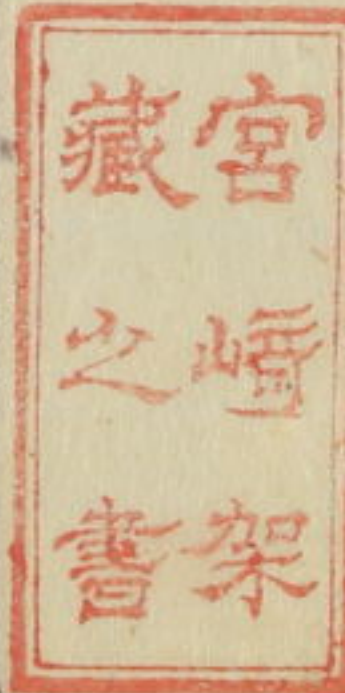 宮﨑架
藏之書